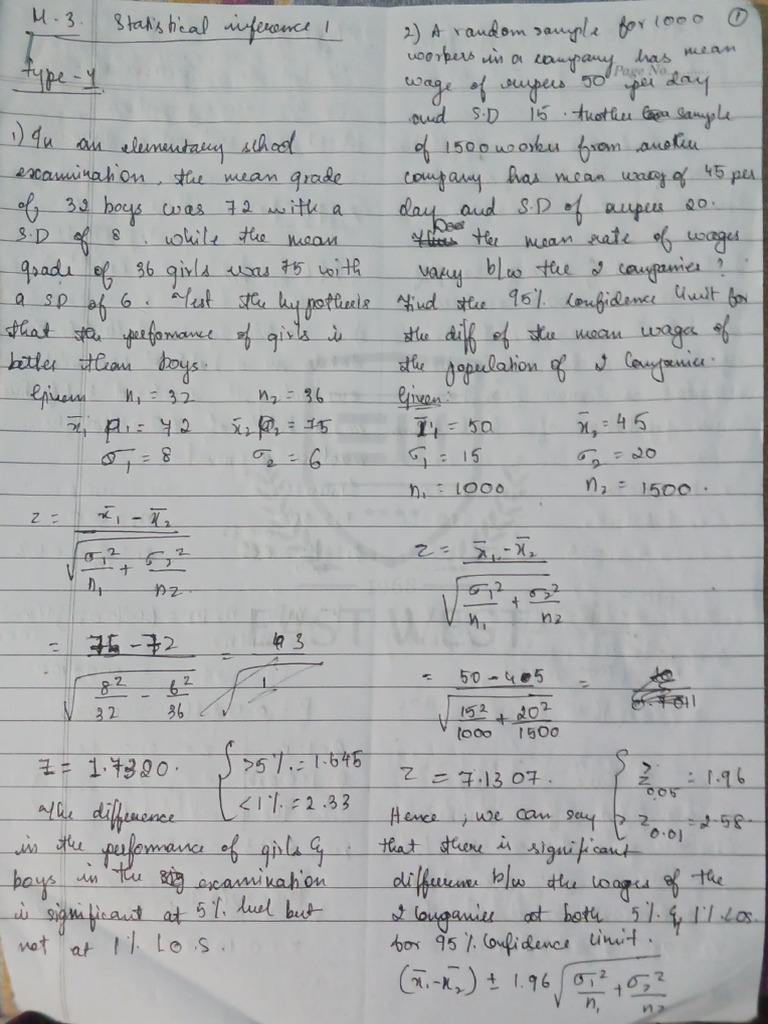 M.3. Statistical inference 1
type-4
1) In an elementary school
examination, the mean grade
of 32 boys was 72 with a
S.D of 8. while the mean
grade of 36 girls was 75 with
a SD of 6. Test the hypotheels
that the perfomance of girls is
better than boys.
Given n₁ = 32 n₂ = 36
x̄₁ = 72 x̄₂ = 75
σ₁ = 8 σ₂ = 6
z = x̄₁ - x̄₂
√σ₁²/n₁ + σ₂²/n₂
= 75 - 72 = 3
√8²/32 - 6²/36 √1
Z = 1.7320. { >5% = 1.645
<1% = 2.33
The difference
in the perfomance of girls &
boys in the examination
is significant at 5% luel but
not at 1% L.o.S.
①
2) A random sample for 1000
workers in a company has mean
Page No.
wage of rupees 50 per day
and S.D 15. Another sample
of 1500 worker from another
company has mean wage of 45 per
day and S.D of rupees 20.
Does the mean rate of wages
vary b/w the 2 companies?
Find the 95% confidence limit for
the diff of the mean wages of
the population of 2 Companies.
Given:
x̄₁ = 50 x̄₂ = 45
σ₁ = 15 σ₂ = 20
n₁ = 1000 n₂ = 1500.
Z = x̄₁ - x̄₂
√σ₁²/n₁ + σ₂²/n₂
= 50 - 45 =
√15²/1000 + 20²/1500
Z = 7.1307. { z0.05 = 1.96
z0.01 = 2.58
Hence, we can say
that there is significant
difference b/w the wages of the
2 Companies at both 5% & 1% Los.
for 95% Confidence limit.
(x̄₁-x̄₂) ± 1.96 √σ₁²/n₁ + σ₂²/n₂
1968
EAST WEST